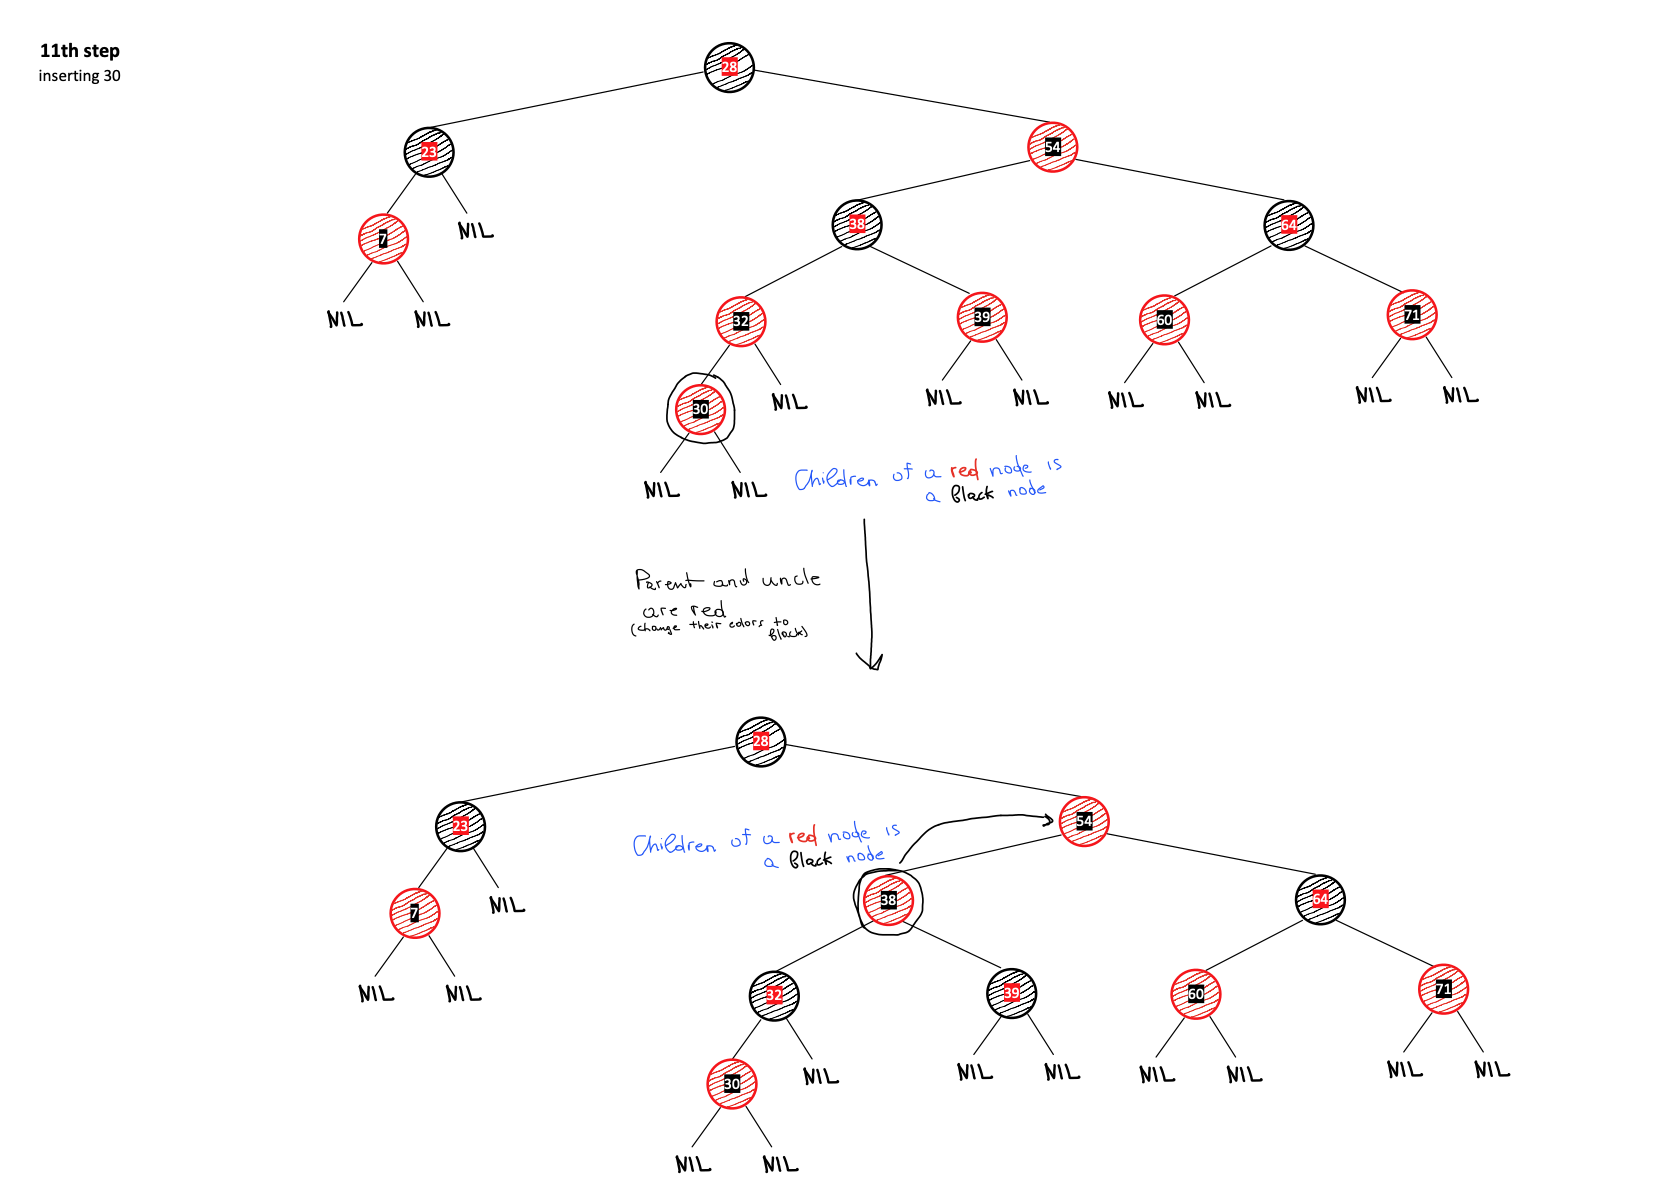 11th step
inserting 30
28
23
54
7
NIL
38
64
NIL
NIL
32
39
60
71
30
NIL
NIL
NIL
NIL
NIL
NIL
NIL
NIL
NIL
Children of a red node is
a black node
Parent and uncle
are red
(change their colors to
black)
28
23
54
Children of a red node is
a black node
7
NIL
38
64
NIL
NIL
32
39
60
71
30
NIL
NIL
NIL
NIL
NIL
NIL
NIL
NIL
NIL